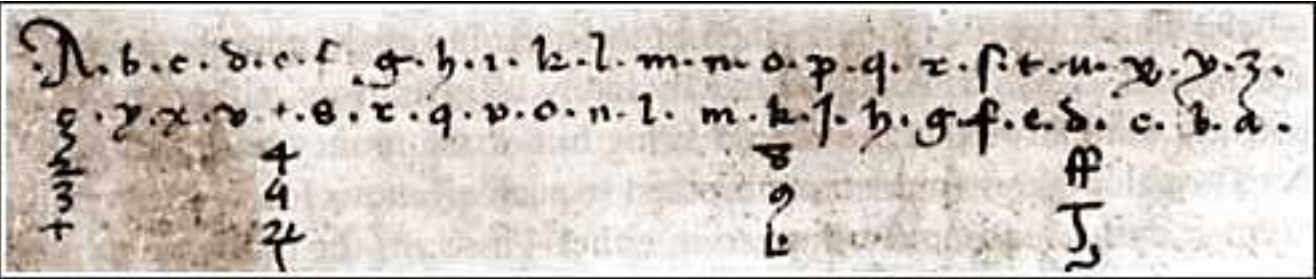 .A.b.c.d.e.f.g.h.ı.k.l.m.n.o.p.q.r.ſ.t.u.x.y.z.
z.y.x.v.t.s.r.q.p.o.n.l.m.k.j.h.g.f.e.d.c.b.a.
2 4 8 ff
3 4 9
+